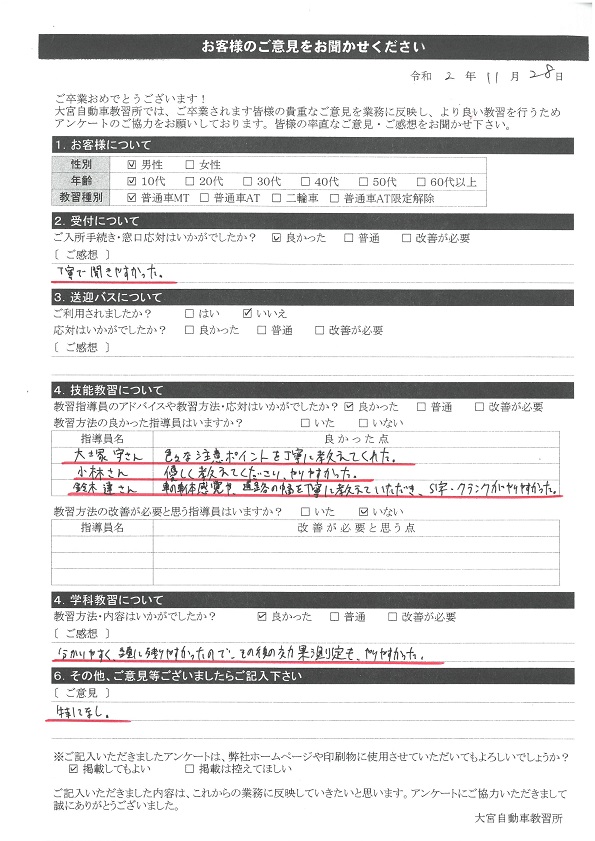 お客様のご意見をお聞かせください
令和 2 年 11 月 28 日
ご卒業おめでとうございます!
大宮自動車教習所では、ご卒業されます皆様の貴重なご意見を業務に反映し、より良い教習を行うため
アンケートのご協力をお願いしております。皆様の率直なご意見・ご感想をお聞かせ下さい。
1. お客様について
性別 ☑ 男性 □ 女性
年齢 ☑ 10代 □ 20代 □ 30代 □ 40代 □ 50代 □ 60代以上
教習種別 ☑ 普通車MT □ 普通車AT □ 二輪車 □ 普通車AT限定解除
2. 受付について
ご入所手続き・窓口応対はいかがでしたか? ☑ 良かった □ 普通 □ 改善が必要
〔 ご感想 〕
丁寧で聞きやすかった。
3. 送迎バスについて
ご利用されましたか? □ はい ☑ いいえ
応対はいかがでしたか? □ 良かった □ 普通 □ 改善が必要
〔 ご感想 〕
4. 技能教習について
教習指導員のアドバイスや教習方法・応対はいかがでしたか? ☑ 良かった □ 普通 □ 改善が必要
教習方法の良かった指導員はいますか? □ いた □ いない
指導員名 良かった点
大塚 守さん 色々な注意ポイントを丁寧に教えてくれた。
小林さん 優しく教えてくださり、やりやすかった。
鈴木 達さん 車の車体感覚や、道路の幅を丁寧に教えていただき、S字・クランクがやりやすかった。
教習方法の改善が必要と思う指導員はいますか? □ いた ☑ いない
指導員名 改善が必要と思う点
4. 学科教習について
教習方法・内容はいかがでしたか? ☑ 良かった □ 普通 □ 改善が必要
〔 ご感想 〕
分かりやすく、頭に残りやすかったので、その後の効果測定も、やりやすかった。
6. その他、ご意見等ございましたらご記入下さい
〔 ご意見 〕
特になし。
※ご記入いただきましたアンケートは、弊社ホームページや印刷物に使用させていただいてもよろしいでしょうか?
☑ 掲載してもよい □ 掲載は控えてほしい
ご記入いただきました内容は、これからの業務に反映していきたいと思います。アンケートにご協力いただきまして
誠にありがとうございました。
大宮自動車教習所